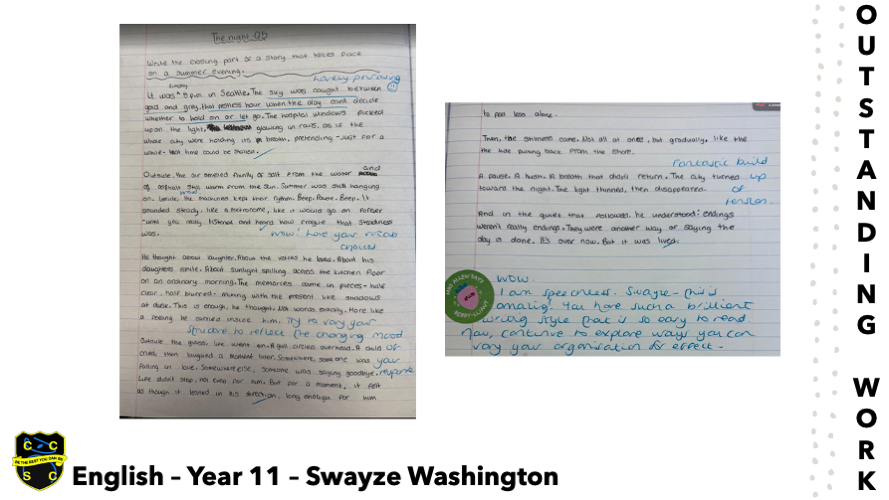 The night Q5
Write the closing part of a story that takes place
on a summer evening.
Lovely phrasing
It was 8pm in Seattle. The sky was caught between
gold and grey, that restless hour when the day can't decide
whether to hold on or let go. The hospital windows picked
upon the light, glowing in rows, as if the
whole city were holding its breath, pretending - just for a
while - that time could be stolen.
Outside, the air smelled faintly of salt from the water and
of asphalt still warm from the sun. Summer was still hanging
on. Inside, the machines kept their rythm. Beep. Pause. Beep. It
wow
sounded steady, like a metronome, like it would go on forever
- until you really listened and heard how fragile that steadiness
was.
wow! Love your vocab
choices
He thought about laughter. About the voices he loved. About his
daughters smile. About sunlight spilling across the kitchen floor
on an ordinary morning. The memories came in pieces - half
clear, half blurred - mixing with the present like shadows
at dusk. This is enough, he thought. Not words exactly. More like
a feeling he carried inside him.
Try to vary your
structure to reflect the changing mood
of
your
response
Outside the glass, life went on. A gull circles overhead. A child
cried, then laughed a moment later. Somewhere, someone was
falling in love. Somewhere else, someone was saying goodbye.
Life didn't stop, not even for him. But for a moment, it felt
as though it leaned in his direction, long enough for him
to feel less alone.
Then, the stillness came. Not all at once, but gradually, like the
the tide pulling back from the shore.
Fantastic build
up
of
tension.
A pause. A hush. A breath that didn't return. The city turned
toward the night. The light thinned, then disappeared.
And in the quiet that followed, he understood: endings
weren't really endings. They were another way of saying the
day is done. It's over now. But it was lived.
MISS ALLEN SAYS
BERRY-LLIANT
WOW.
I am speechless. Swayze - this is
amazing. You have such a brilliant
writing style that is so easy to read.
Now, continue to explore ways you can
vary your organisation for effect.
C C
BE THE BEST YOU CAN BE
S C
English – Year 11 – Swayze Washington
OUTSTANDING WORK